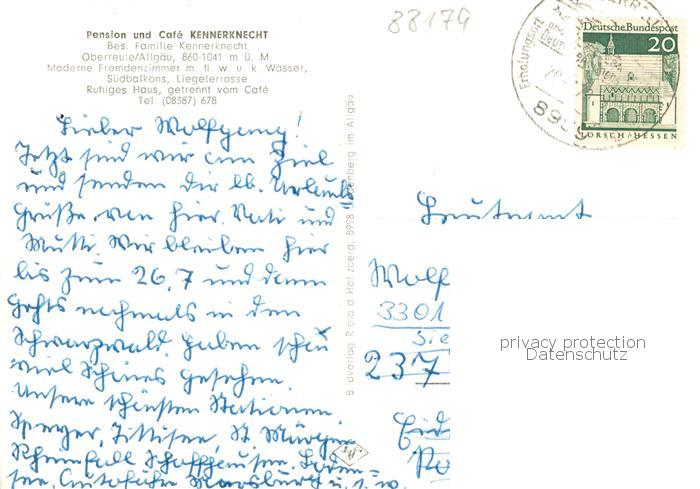 88179
Pension und Café KENNERKNECHT
Bes. Familie Kennerknecht
Oberreute/Allgäu, 860-1041 m ü. M
Moderne Fremdenzimmer m. fl. w. u. k. Wasser,
Südbalkons, Liegeterrasse
Ruhiges Haus, getrennt vom Café
Tel. (08387) 678
Erholungsort
Deutsche Bundespost
20
LORSCH · HESSEN
Lieber Wolfgang!
Jetzt sind wir am Ziel
und senden Dir lb. Urlaubs
Grüße von hier. Vati und
Mutti. Wir bleiben hier
bis zum 26.7 und dann
gehts nochmals in den
Schwarzwald. Haben schon
viel Schönes gesehen.
Unsere schönsten Stationen
Speyer, Titisee, St Märgen
Rheinfall Schaffhausen, Boden=
see, Autofähre Meersburg u.s.w.
Leutnant
Wolf
3301
237
privacy protection
Datenschutz